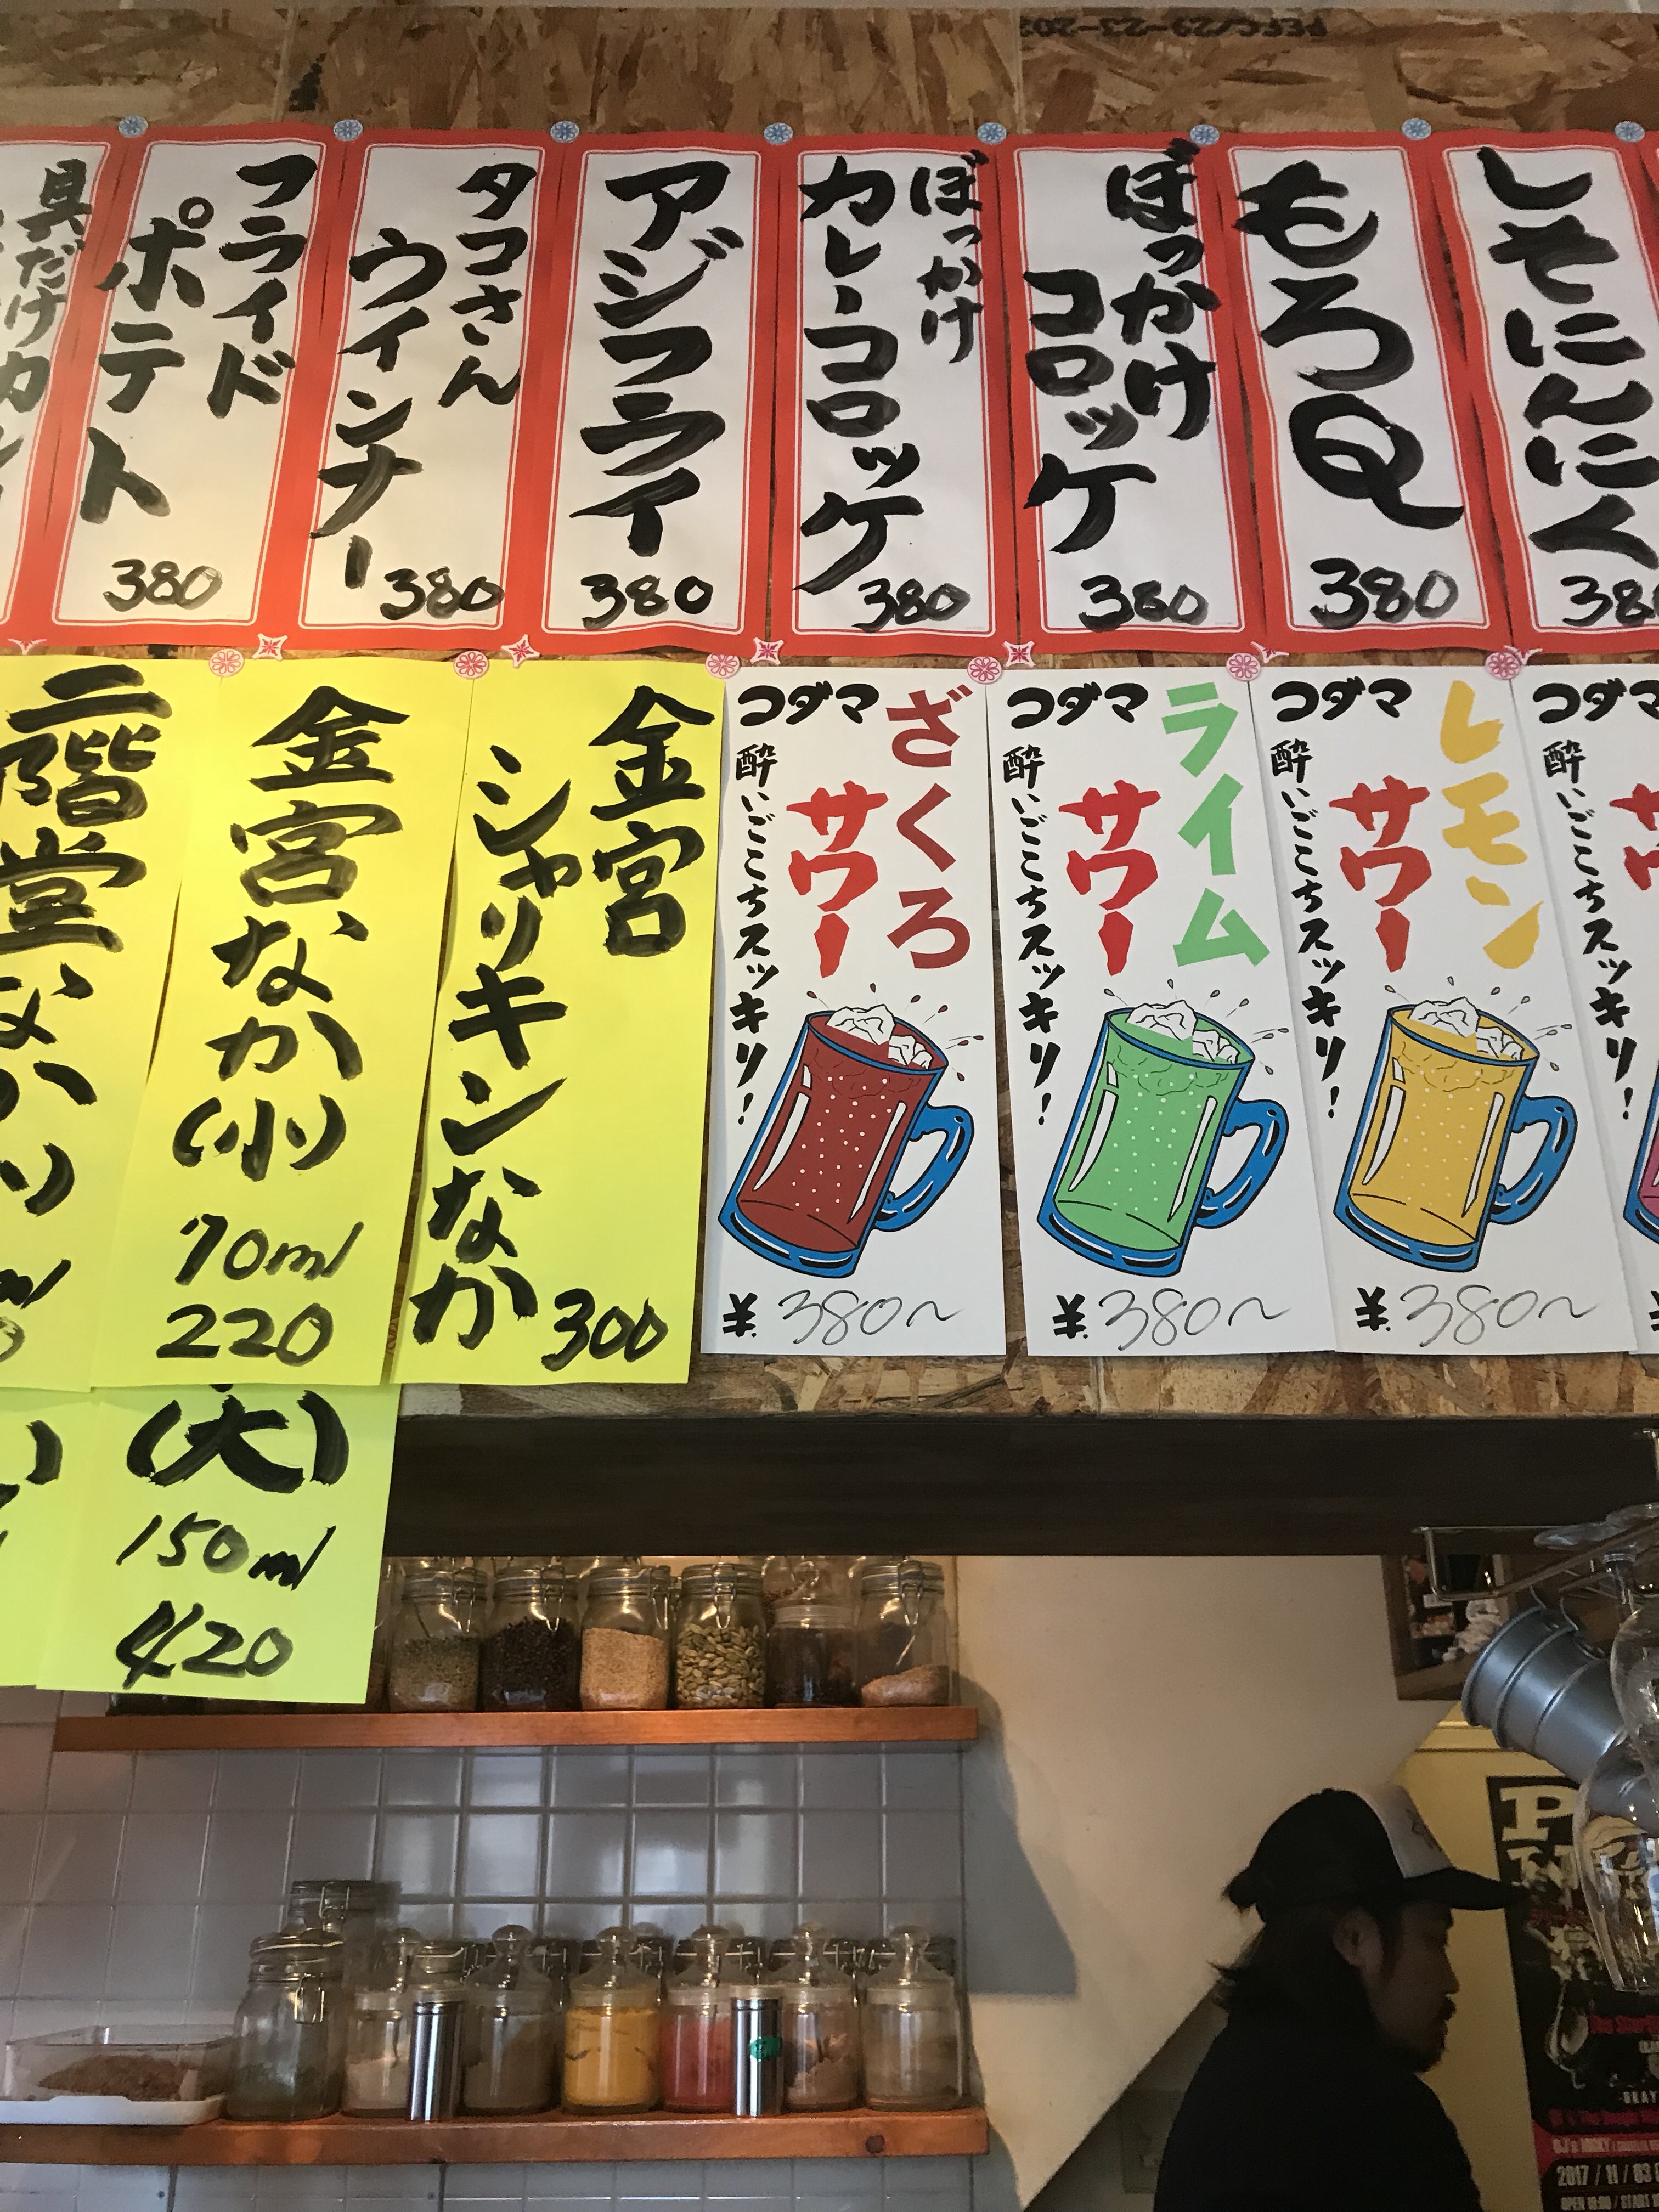 しそにんにく
380
もろQ
380
ぼっかけ
コロッケ
380
ぼっかけ
カレーコロッケ
380
アジフライ
380
タコさん
ウインナー
380
フライド
ポテト
380
具だけ
コダマ
レモン
サワー
コダマ
酔いごこちスッキリ!
¥380~
ライム
サワー
コダマ
酔いごこちスッキリ!
¥380~
ざくろ
サワー
コダマ
酔いごこちスッキリ!
¥380~
金宮
シャリキンなか
300
金宮なか(小)
70ml
220
(大)
150ml
420
二階堂なか
2017/11/03